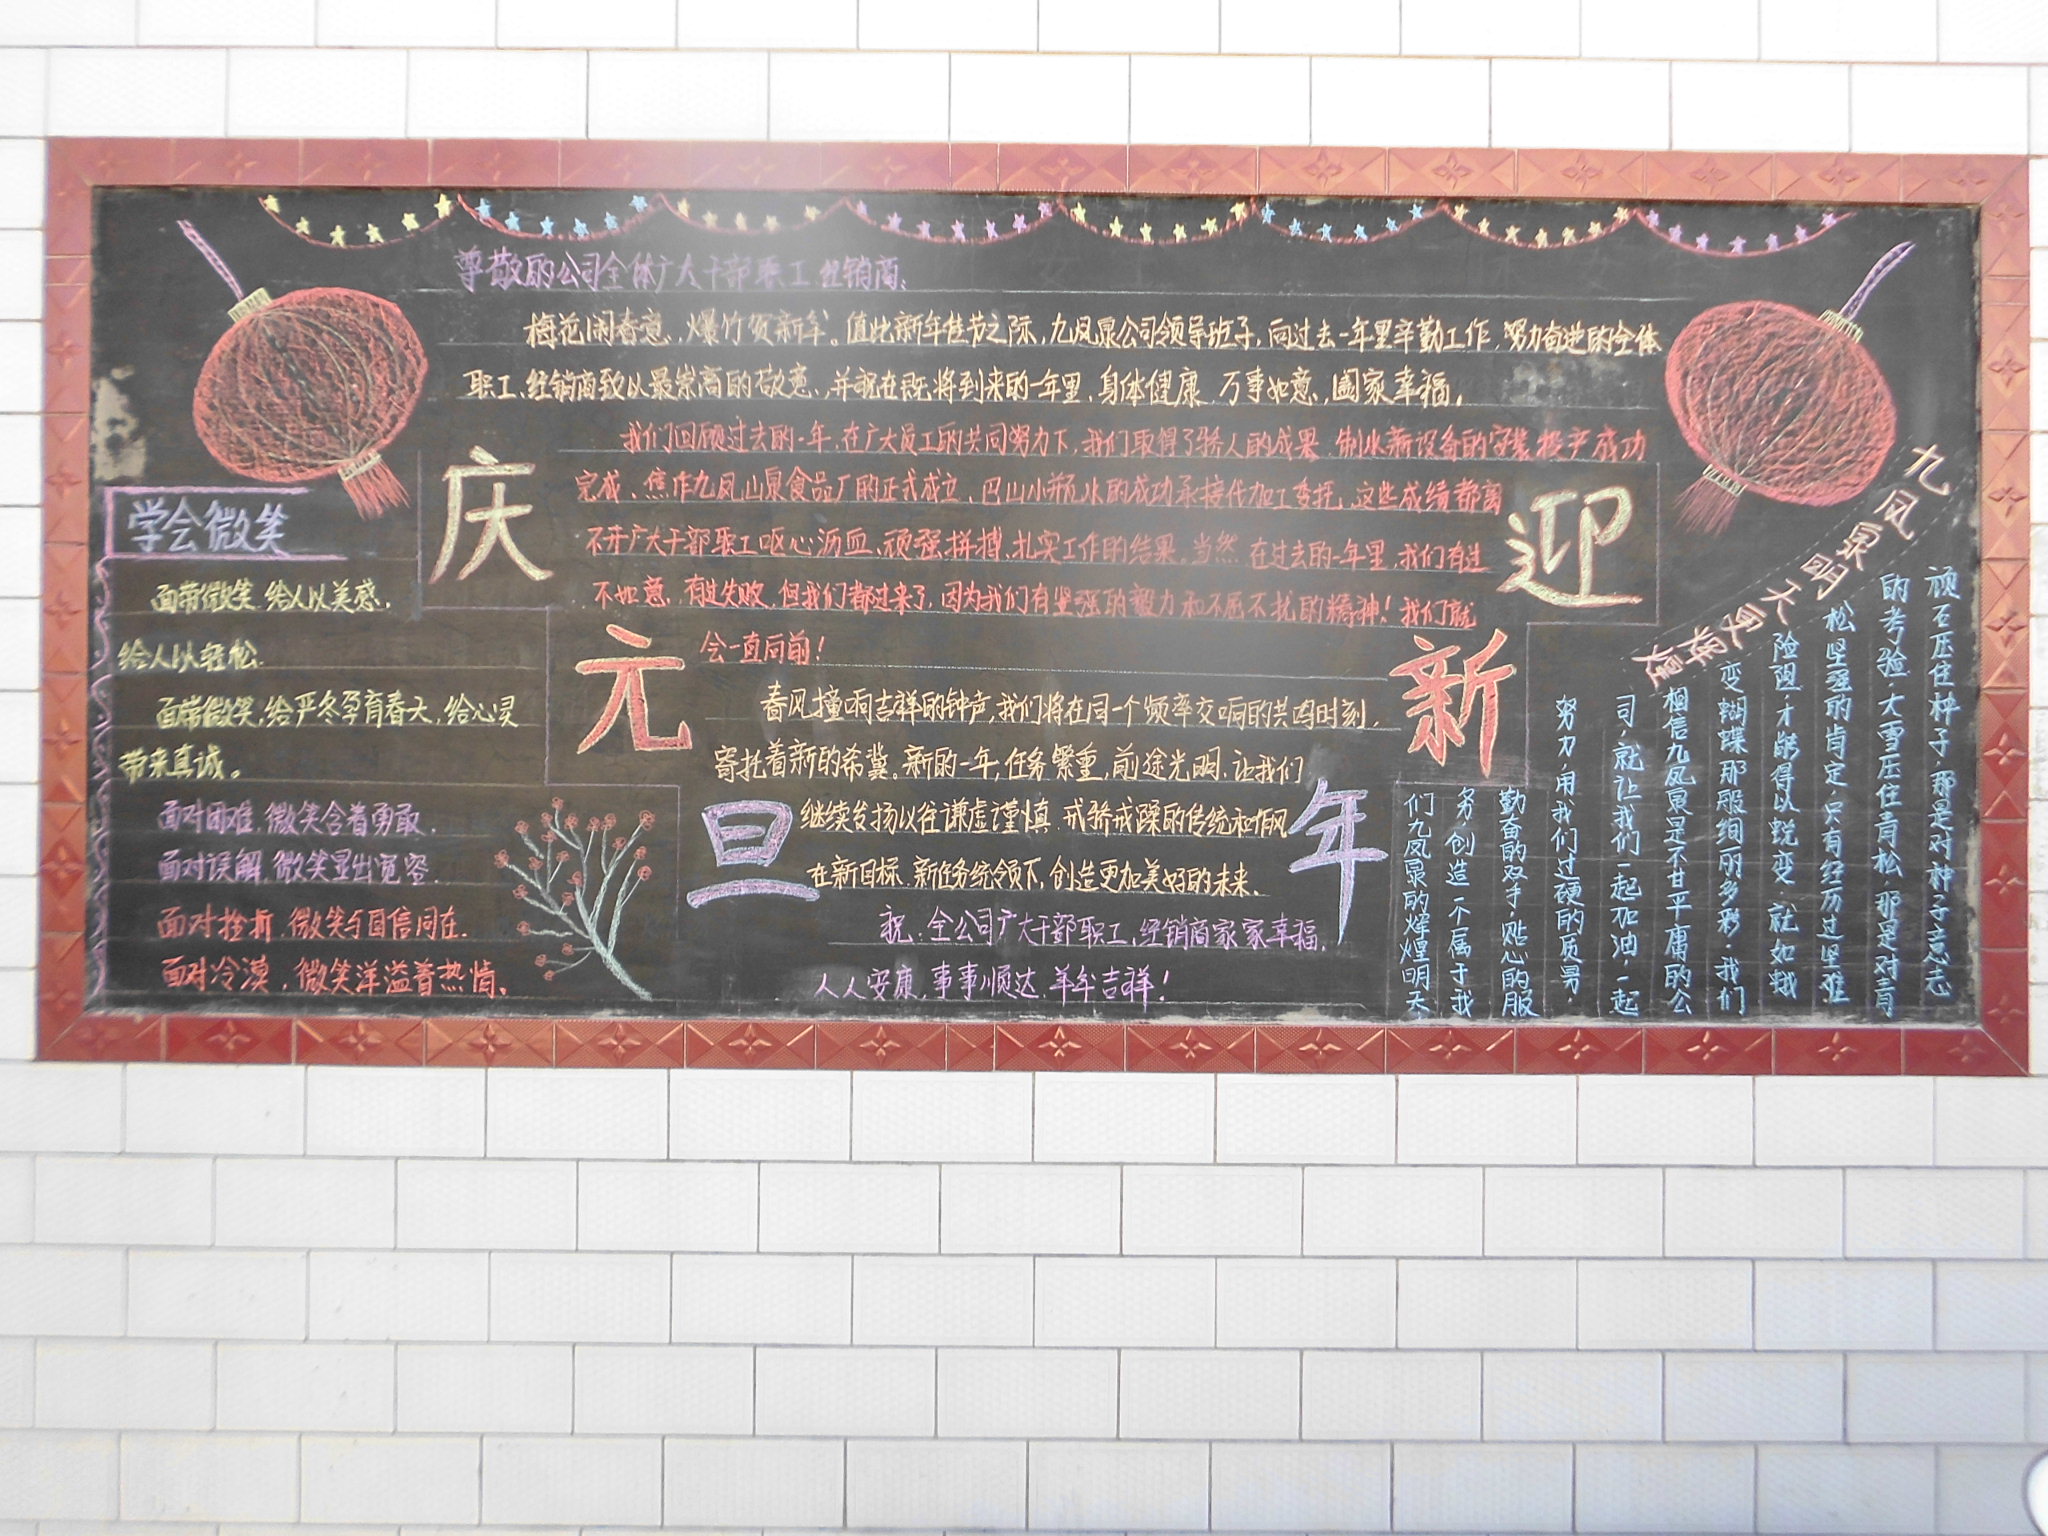 尊敬的公司全体广大干部职工、经销商:
梅花闹春意,爆竹贺新年。值此新年佳节之际,九凤泉公司领导班子,向过去一年里辛勤工作,努力奋进的全体
职工、经销商致以最崇高的敬意,并祝在既将到来的一年里,身体健康,万事如意,阖家幸福。
我们回顾过去的一年,在广大员工的共同努力下,我们取得了骄人的成果,制水新设备的安装投产成功
完成、焦作九凤山泉食品厂的正式成立、巴山小瓶水的成功承接代加工委托,这些成绩都离
不开广大干部职工呕心沥血、顽强拼搏、扎实工作的结果。当然,在过去的一年里,我们有过
不如意,有过失败,但我们都过来了,因为我们有坚强的毅力和不屈不扰的精神!我们就
会一直向前!
春风撞响吉祥的钟声,我们将在同一个频率交响的共鸣时刻,
寄托着新的希冀。新的一年,任务繁重,前途光明,让我们
继续发扬以往谦虚谨慎,戒骄戒躁的传统和作风
在新目标、新任务统领下,创造更加美好的未来。
祝:全公司广大干部职工、经销商家家幸福,
人人安康,事事顺达,羊年吉祥!
庆
元
旦
迎
新
年
学会微笑
面带微笑,给人以美感,
给人以轻松.
面带微笑,给严冬孕育春天,给心灵
带来真诚。
面对困难,微笑含着勇敢,
面对误解,微笑显出宽容.
面对挫折,微笑与自信同在.
面对冷漠,微笑洋溢着热情。
九凤泉明天更辉煌
顽石压住种子,那是对种子意志
的考验,大雪压住青松,那是对青
松坚强的肯定,只有经历过坚难
险阻,才能得以蜕变,就如蛾
变蝴蝶那般绚丽多彩,我们
相信九凤泉是不甘平庸的公
司,就让我们一起加油,一起
努力,用我们过硬的质量,
勤奋的双手,贴心的服
务,创造一个属于我
们九凤泉的辉煌明天